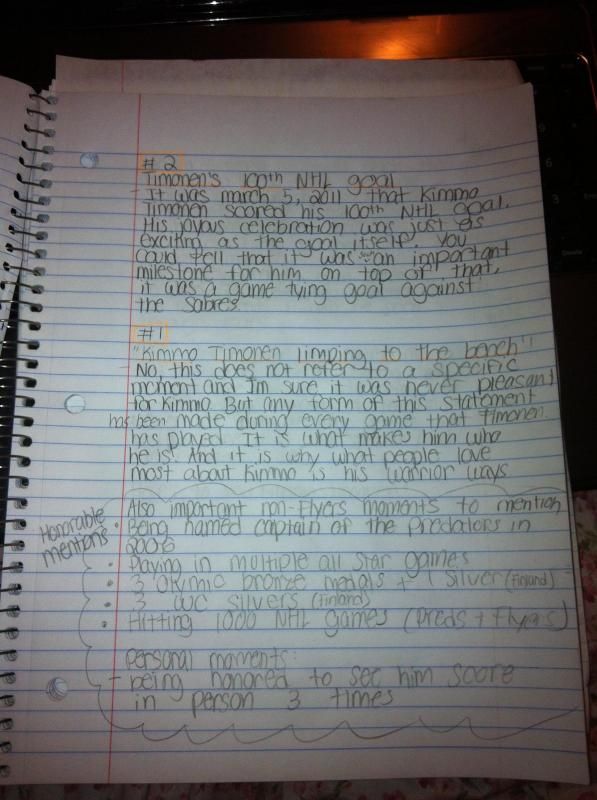 # 2
Timonen's 100th NHL goal
- It was march 5, 2011 that Kimmo
Timonen scored his 100th NHL Goal.
His joyous celebration was just as
exciting as the goal itself. You
could tell that it was an important
milestone for him on top of that,
it was a game tying goal against
the Sabres.
#1
"Kimmo Timonen limping to the bench"!
- No, this does not refer to a specific
moment and I'm sure it was never pleasant
for Kimmo. But any form of this statement
has been made during every game that Timonen
has played. It is what makes him who
he is! And it is why what people love
most about Kimmo is his warrior ways
Honorable mentions
Also important non-Flyers moments to mention
• Being named captain of the predators in
2006
• Playing in multiple all star games
• 3 Olymic bronze medals + 1 Silver (Finland)
• 3 WC silvers (Finland)
• Hitting 1000 NHL games (Preds + Flyers)
personal moments:
- being honored to see him score
in person 3 times